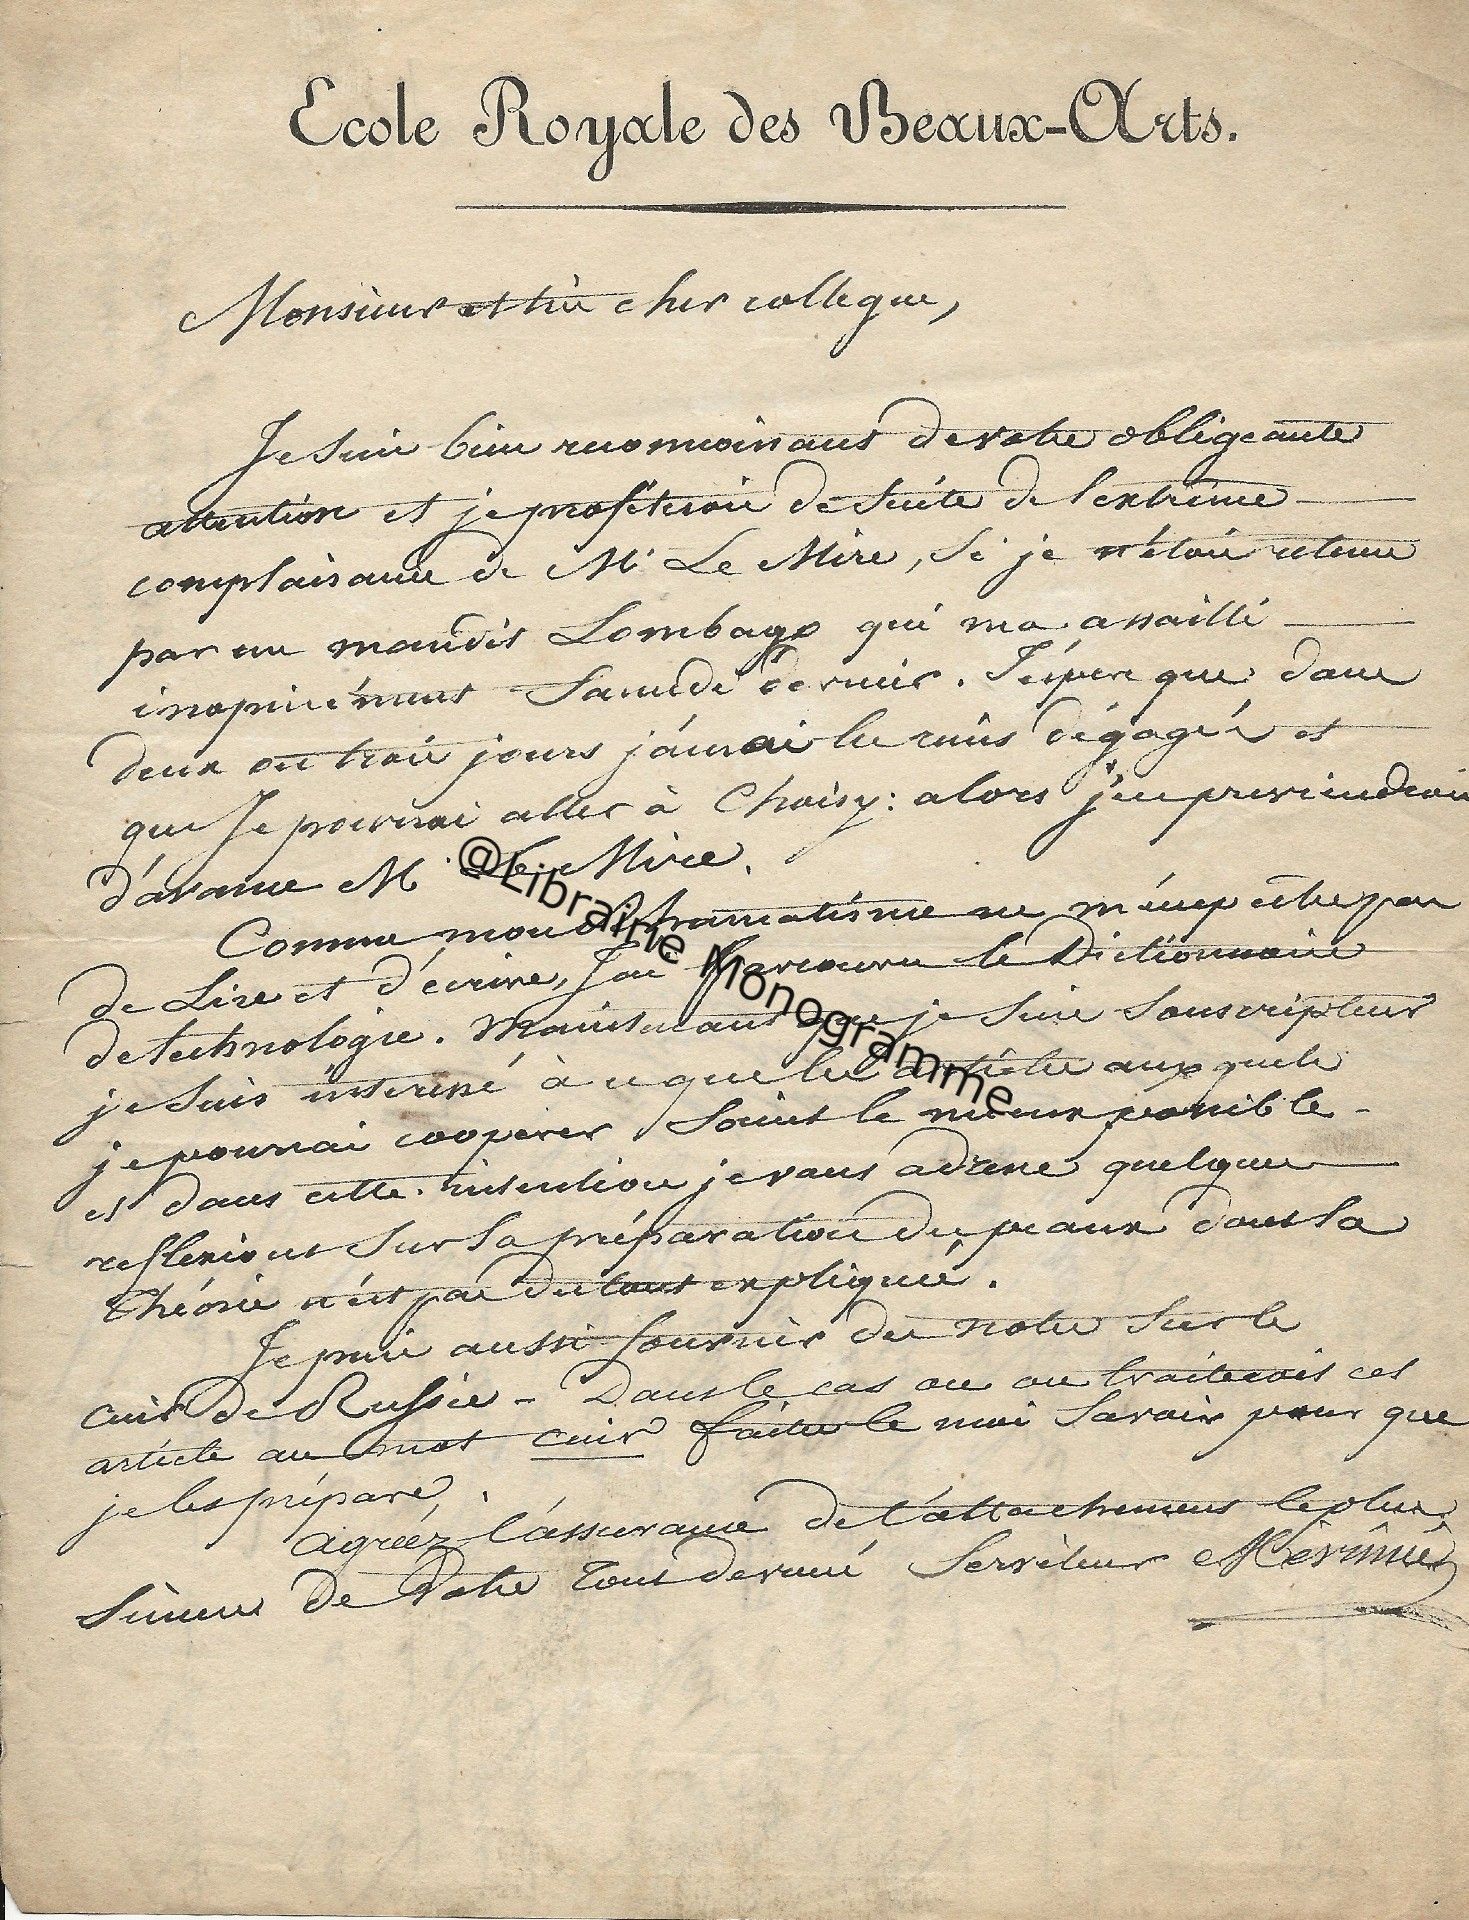 Ecole Royale des Beaux-Arts.
Monsieur et très cher collegue,
Je suis bien reconnoissant de votre obligeante
attention et je profiterois de suite de l'extrême
complaisance de Mr Le Mire, si je n'étois retenu
par un maudit Lombago qui m'a assailli
inopinément Samedi dernier. J'éspere que dans
deux ou trois jours j'aurai les reins dégagés et
que je pourrai aller à Choisy: alors j'en previendrai
d'avance Mr Le Mire.
Comme mon rhumatisme ne m'empêche pas
de Lire et d'écrire, J'ai parcouru le Dictionnaire
de technologie. Maintenant que je suis Souscripteur
je suis interessé à ce que les articles auxquels
je pourrai cooperer soient le mieux possible -
et dans cette intention je vous adresse quelques
reflexions sur la préparation des peaux dont la
Théorie n'est pas du tout expliquée.
Je puis aussi fournir des notes sur le
cuir de Russie - Dans le cas ou on traiterois cet
article au mot cuir faites le moi savoir pour que
je les prépare.
agréez l'assurance de l'attachement le plus
sincere de Votre Tout devoué Serviteur Mérimée
@Librairie Monogramme